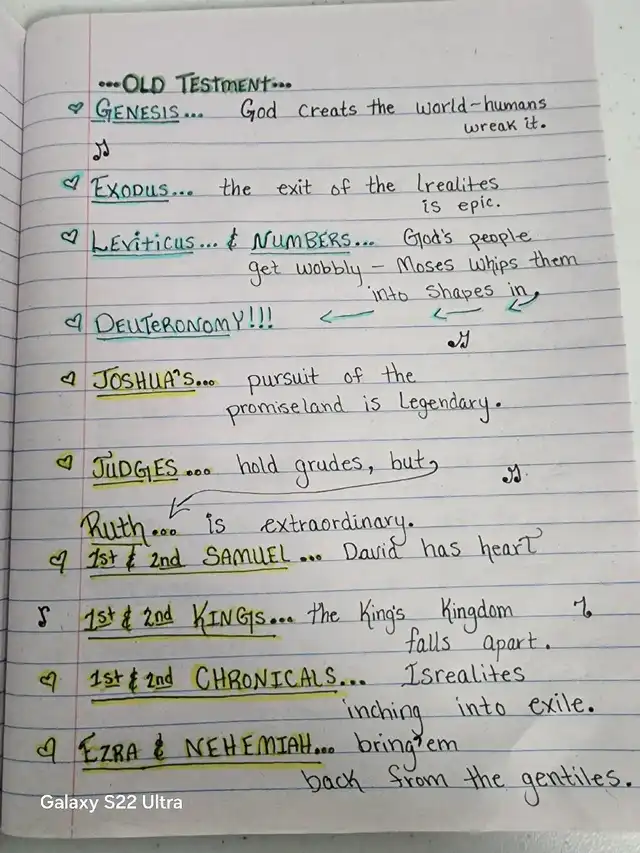 ...OLD TESTMENT...
GENESIS... God creats the world-humans
wreak it.
EXODUS... the exit of the Irealites
is epic.
LEVITICUS... & NUMBERS... God's people
get wobbly - Moses whips them
into shapes in
DEUTERONOMY!!!
JOSHUA'S... pursuit of the
promiseland is Legendary.
JUDGES... hold grudes, but,
Ruth... is extraordinary.
1st & 2nd SAMUEL... David has heart
1st & 2nd KINGS... the King's Kingdom
falls apart.
1st & 2nd CHRONICALS... Isrealites
inching into exile.
EZRA & NEHEMIAH... bring'em
back from the gentiles.
Galaxy S22 Ultra